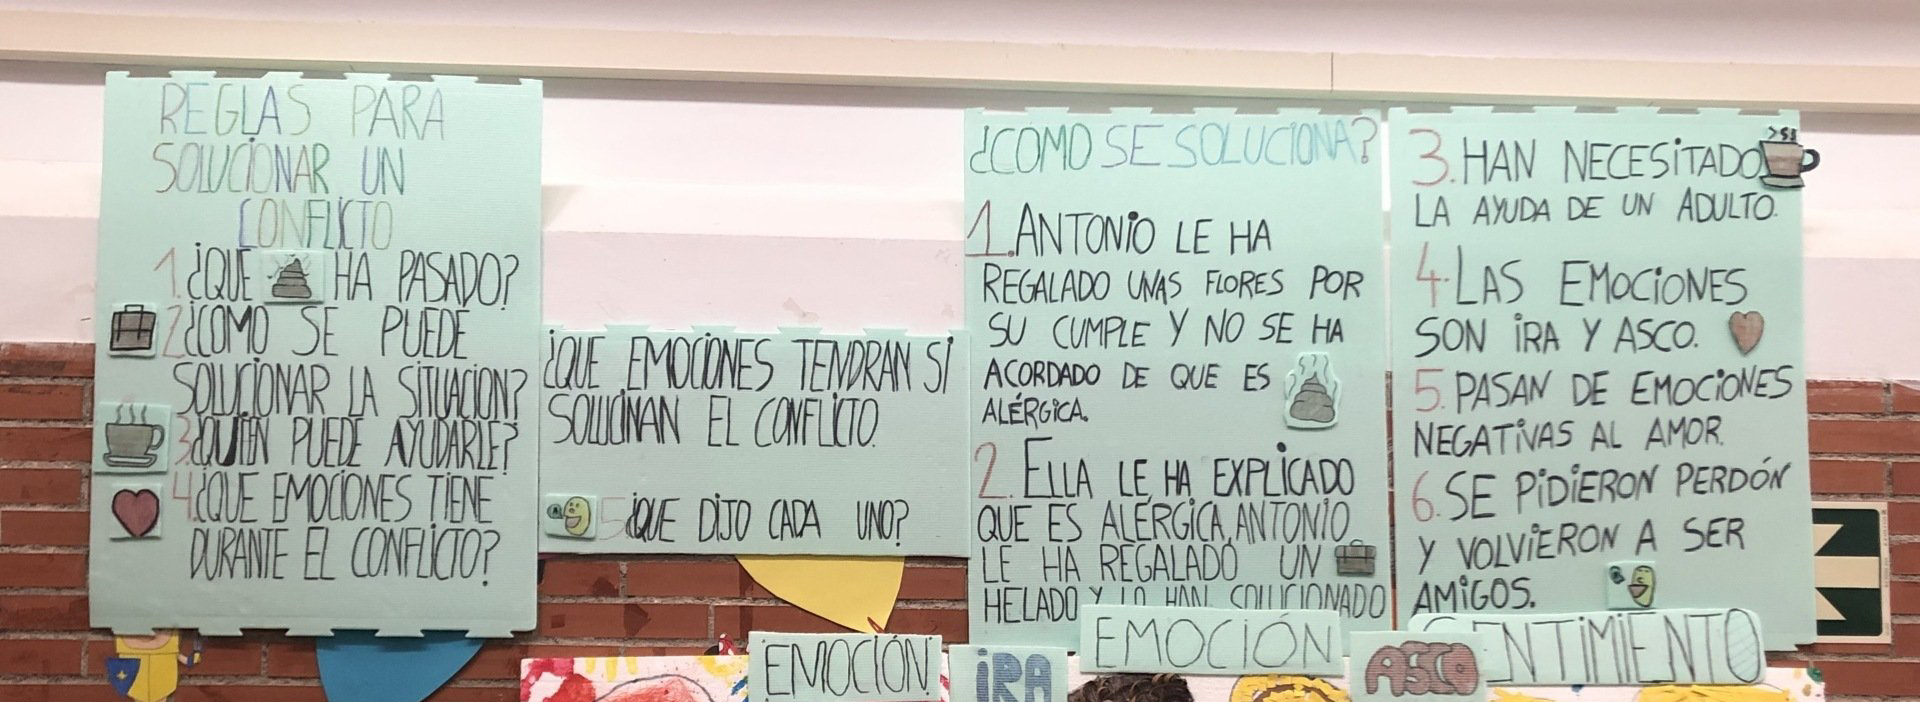 REGLAS PARA
SOLUCIONAR UN
CONFLICTO
1. ¿QUE HA PASADO?
2. ¿COMO SE PUEDE
SOLUCIONAR LA SITUACION?
3. ¿QUIEN PUEDE AYUDARLE?
4. ¿QUE EMOCIONES TIENE
DURANTE EL CONFLICTO?
¿QUE EMOCIONES TENDRAN SI
SOLUCINAN EL CONFLICTO.
5. ¿QUE DIJO CADA UNO?
¿COMO SE SOLUCIONA?
1. ANTONIO LE HA
REGALADO UNAS FLORES POR
SU CUMPLE Y NO SE HA
ACORDADO DE QUE ES
ALÉRGICA.
2. ELLA LE HA EXPLICADO
QUE ES ALÉRGICA, ANTONIO
LE HA REGALADO UN
HELADO Y LO HAN SOLUCIONADO
3. HAN NECESITADO
LA AYUDA DE UN ADULTO.
4. LAS EMOCIONES
SON IRA Y ASCO.
5. PASAN DE EMOCIONES
NEGATIVAS AL AMOR.
6. SE PIDIERON PERDÓN
Y VOLVIERON A SER
AMIGOS.
EMOCIÓN
IRA
EMOCIÓN
ASCO
SENTIMIENTO